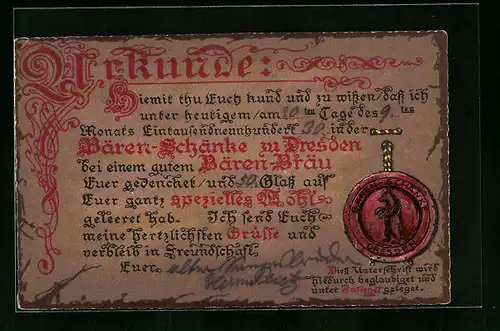 Urkunde:
Hiemit thu Euch kund und zu wißen/daß ich
unter heutigem/am 20 ten Tage des 9. ten
Monats Eintausendneunhundert 30 in der
Bären-Schänke zu Dresden
bei einem gutem Bären-Bräu
Euer gedencket/und 50 Glaß auf
Euer gantz spezielles Wohl
geleeret hab. Ich send Euch
meine hertzlichsten Grüsse und
verbleib in Freundschaft
Euer
BÄREN-SCHÄNKE
DRESDEN
Dieß Unterschrift wird
hiedurch beglaubiget und
unter Insiegel geleget.